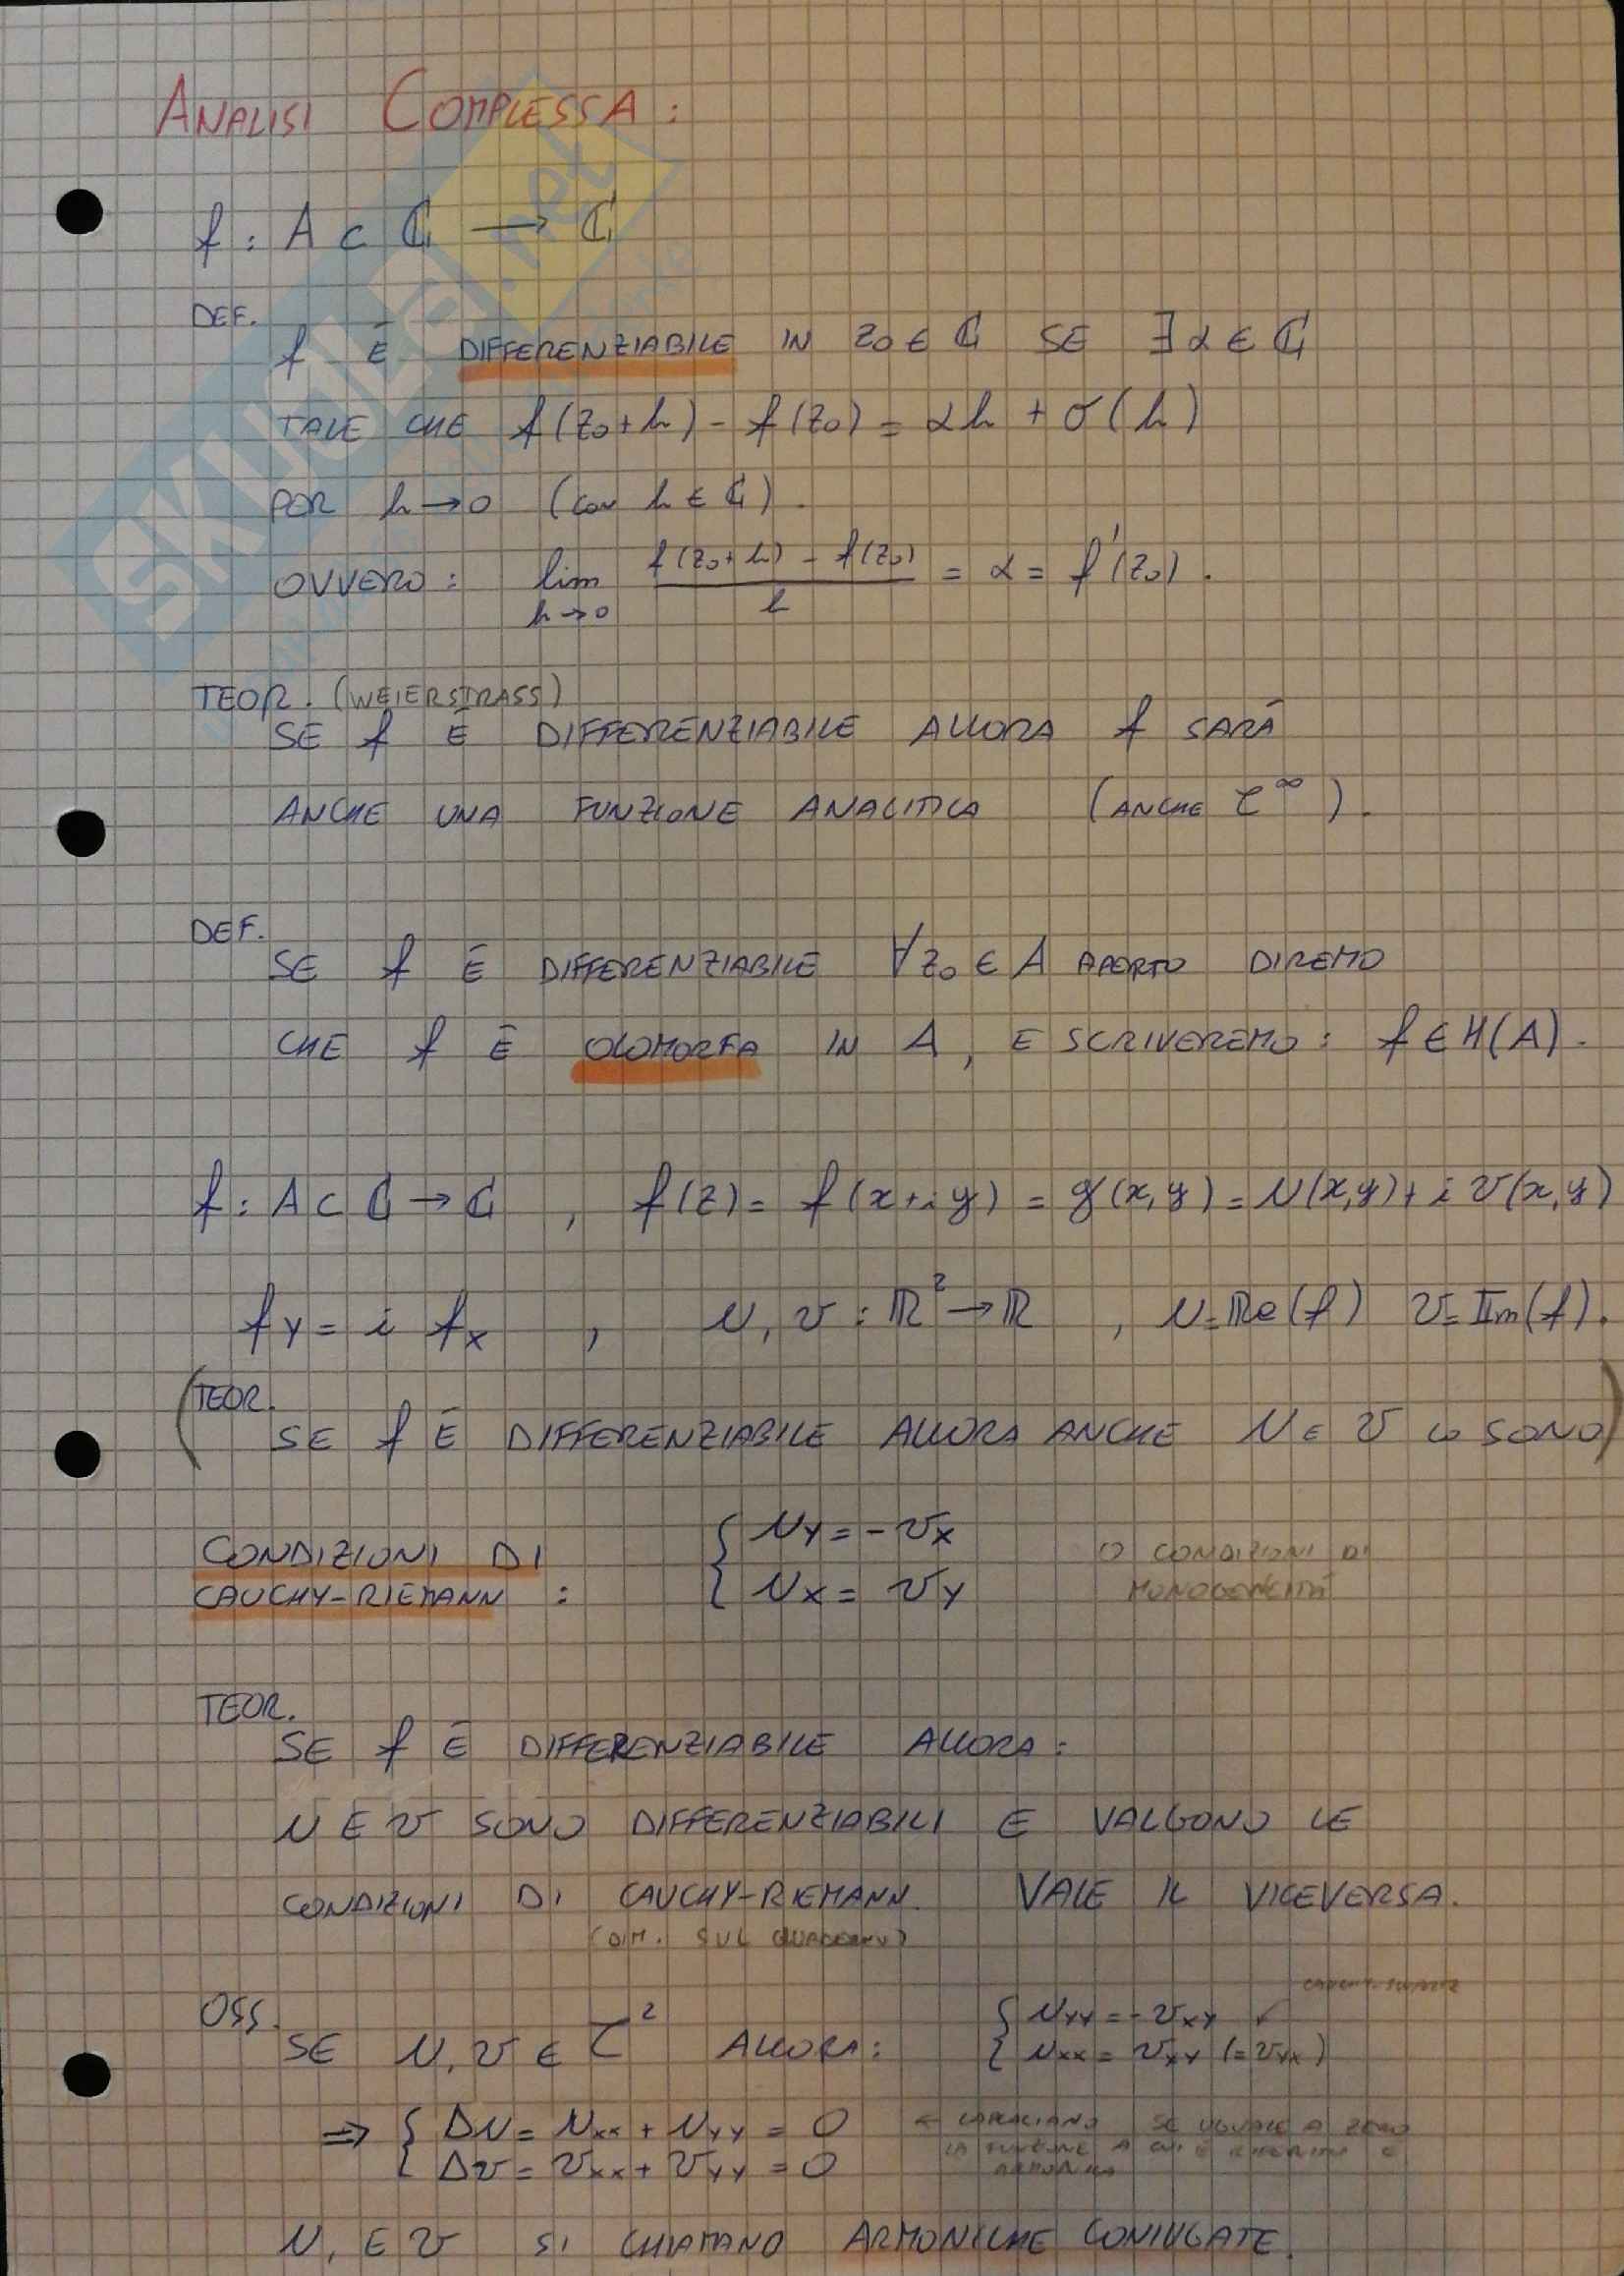 ANALISI COMPLESSA:
f: A ⊂ ℂ → ℂ
DEF.
f É DIFFERENZIABILE IN z₀ ∈ ℂ SE ∃ α ∈ ℂ
TALE CHE f(z₀+h) - f(z₀) = αh + σ(h)
PER h→0 (con h ∈ ℂ).
OVVERO: lim h→0 (f(z₀+h) - f(z₀))/h = α = f'(z₀).
TEOR. (WEIERSTRASS)
SE f É DIFFERENZIABILE ALLORA f SARÁ
ANCHE UNA FUNZIONE ANALITICA (ANCHE C^∞).
DEF.
SE f É DIFFERENZIABILE ∀z₀ ∈ A APERTO DIREMO
CHE f É OLOMORFA IN A, E SCRIVEREMO: f ∈ H(A).
f: A ⊂ ℂ → ℂ , f(z) = f(x+iy) = g(x,y) = u(x,y) + i v(x,y)
f_y = i f_x , u, v: ℝ² → ℝ , u = Re(f) v = Im(f).
(TEOR.
SE f É DIFFERENZIABILE ALLORA ANCHE u E v LO SONO)
CONDIZIONI DI CAUCHY-RIEMANN: { u_y = -v_x
{ u_x = v_y
O CONDIZIONI DI
MONOGENEITÁ
TEOR.
SE f É DIFFERENZIABILE ALLORA:
u E v SONO DIFFERENZIABILI E VALGONO LE
CONDIZIONI DI CAUCHY-RIEMANN. VALE IL VICEVERSA.
(DIM. SUL QUADERNO)
OSS.
SE u, v ∈ C² ALLORA: { u_yy = -v_xy ↙
{ u_xx = v_xy (= v_yx)
⇒ { Δu = u_xx + u_yy = 0
{ Δv = v_xx + v_yy = 0
← LAPLACIANO SE UGUALE A ZERO
LA FUNZIONE A CUI É RIFERITO É
ARMONICA
u, E v SI CHIAMANO ARMONICHE CONIUGATE.
SKUOLA.net